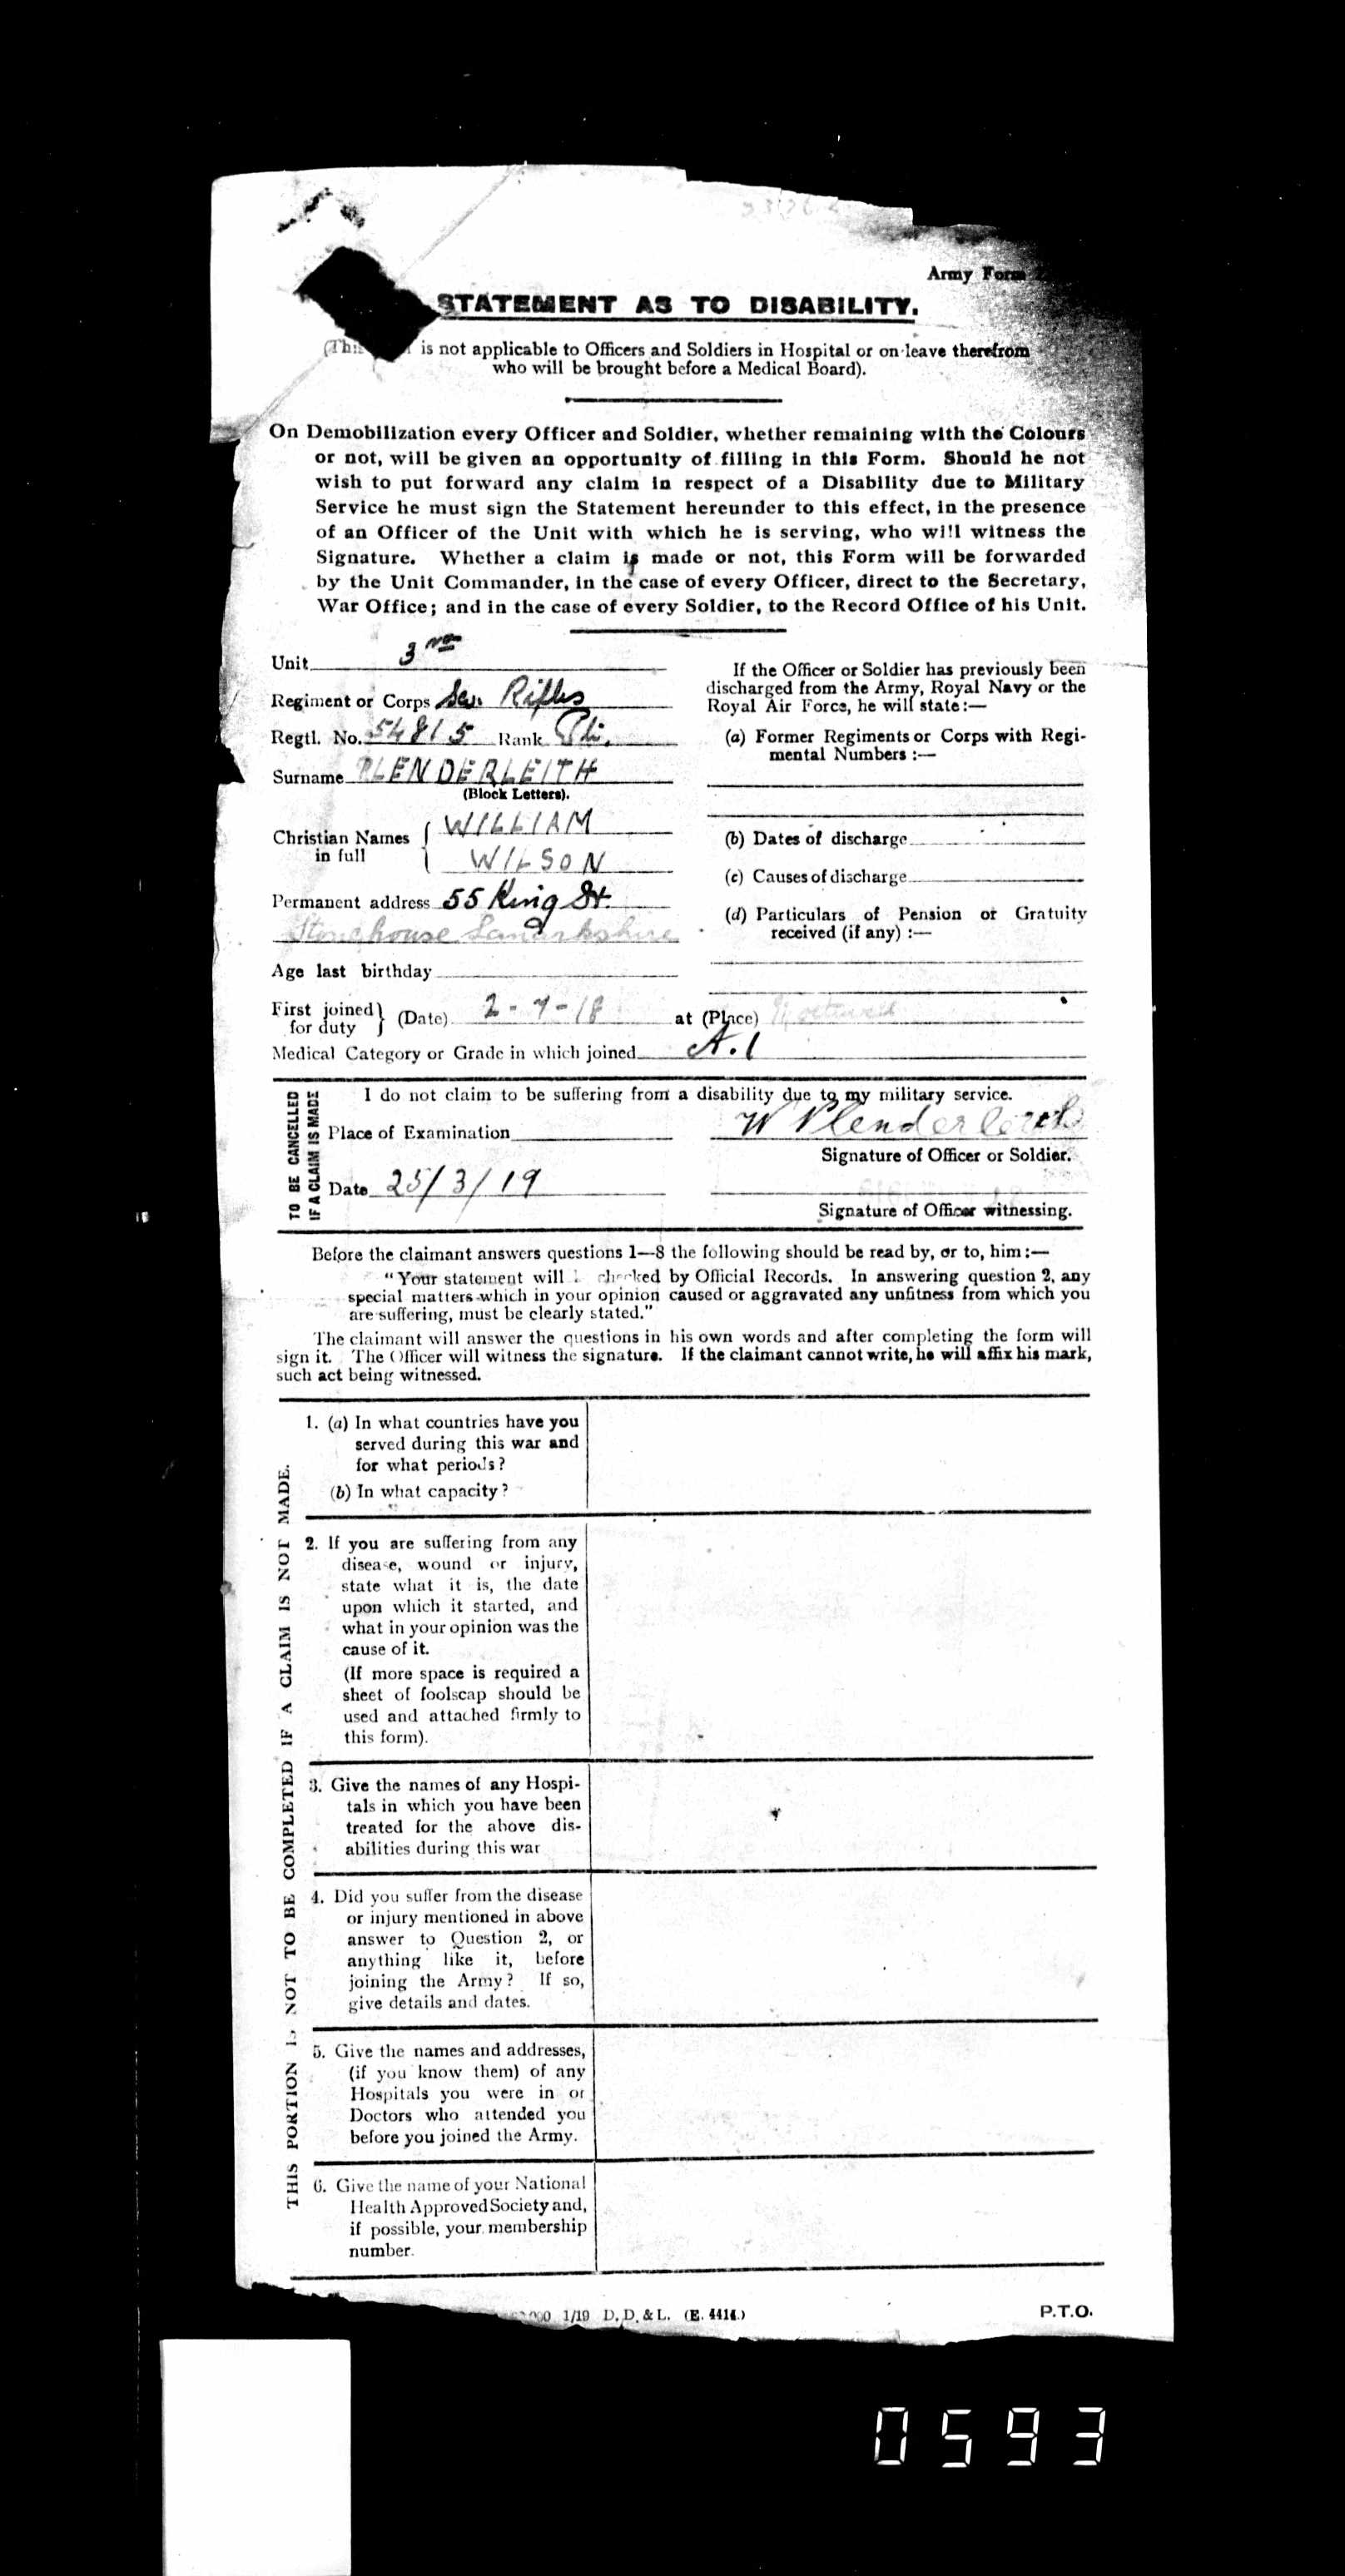 Army Form
STATEMENT AS TO DISABILITY.
(This is not applicable to Officers and Soldiers in Hospital or on leave therefrom
who will be brought before a Medical Board).
On Demobilization every Officer and Soldier, whether remaining with the Colours
or not, will be given an opportunity of filling in this Form. Should he not
wish to put forward any claim in respect of a Disability due to Military
Service he must sign the Statement hereunder to this effect, in the presence
of an Officer of the Unit with which he is serving, who will witness the
Signature. Whether a claim is made or not, this Form will be forwarded
by the Unit Commander, in the case of every Officer, direct to the Secretary,
War Office; and in the case of every Soldier, to the Record Office of his Unit.
Unit 3rd
Regiment or Corps Sco. Rifles
Regtl. No. 54815 Rank Pte.
Surname PLENDERLEITH
(Block Letters).
Christian Names in full { WILLIAM
WILSON
Permanent address 55 King St.
Stonehouse Lanarkshire
Age last birthday
First joined for duty } (Date) 2-7-18 at (Place)
Medical Category or Grade in which joined A.1
If the Officer or Soldier has previously been
discharged from the Army, Royal Navy or the
Royal Air Force, he will state:—
(a) Former Regiments or Corps with Regi-
mental Numbers :—
(b) Dates of discharge
(c) Causes of discharge
(d) Particulars of Pension or Gratuity
received (if any) :—
TO BE CANCELLED
IF A CLAIM IS MADE
I do not claim to be suffering from a disability due to my military service.
Place of Examination W Plenderleith
Signature of Officer or Soldier.
Date 25/3/19
Signature of Officer witnessing.
Before the claimant answers questions 1—8 the following should be read by, or to, him:—
"Your statement will checked by Official Records. In answering question 2, any
special matters which in your opinion caused or aggravated any unfitness from which you
are suffering, must be clearly stated."
The claimant will answer the questions in his own words and after completing the form will
sign it. The Officer will witness the signature. If the claimant cannot write, he will affix his mark,
such act being witnessed.
THIS PORTION IS NOT TO BE COMPLETED IF A CLAIM IS NOT MADE.
1. (a) In what countries have you
served during this war and
for what periods?
(b) In what capacity?
2. If you are suffering from any
disease, wound or injury,
state what it is, the date
upon which it started, and
what in your opinion was the
cause of it.
(If more space is required a
sheet of foolscap should be
used and attached firmly to
this form).
3. Give the names of any Hospi-
tals in which you have been
treated for the above dis-
abilities during this war
4. Did you suffer from the disease
or injury mentioned in above
answer to Question 2, or
anything like it, before
joining the Army? If so,
give details and dates.
5. Give the names and addresses,
(if you know them) of any
Hospitals you were in or
Doctors who attended you
before you joined the Army.
6. Give the name of your National
Health Approved Society and,
if possible, your membership
number.
1/19 D. D. & L. (E. 4414.)
P.T.O.
0593